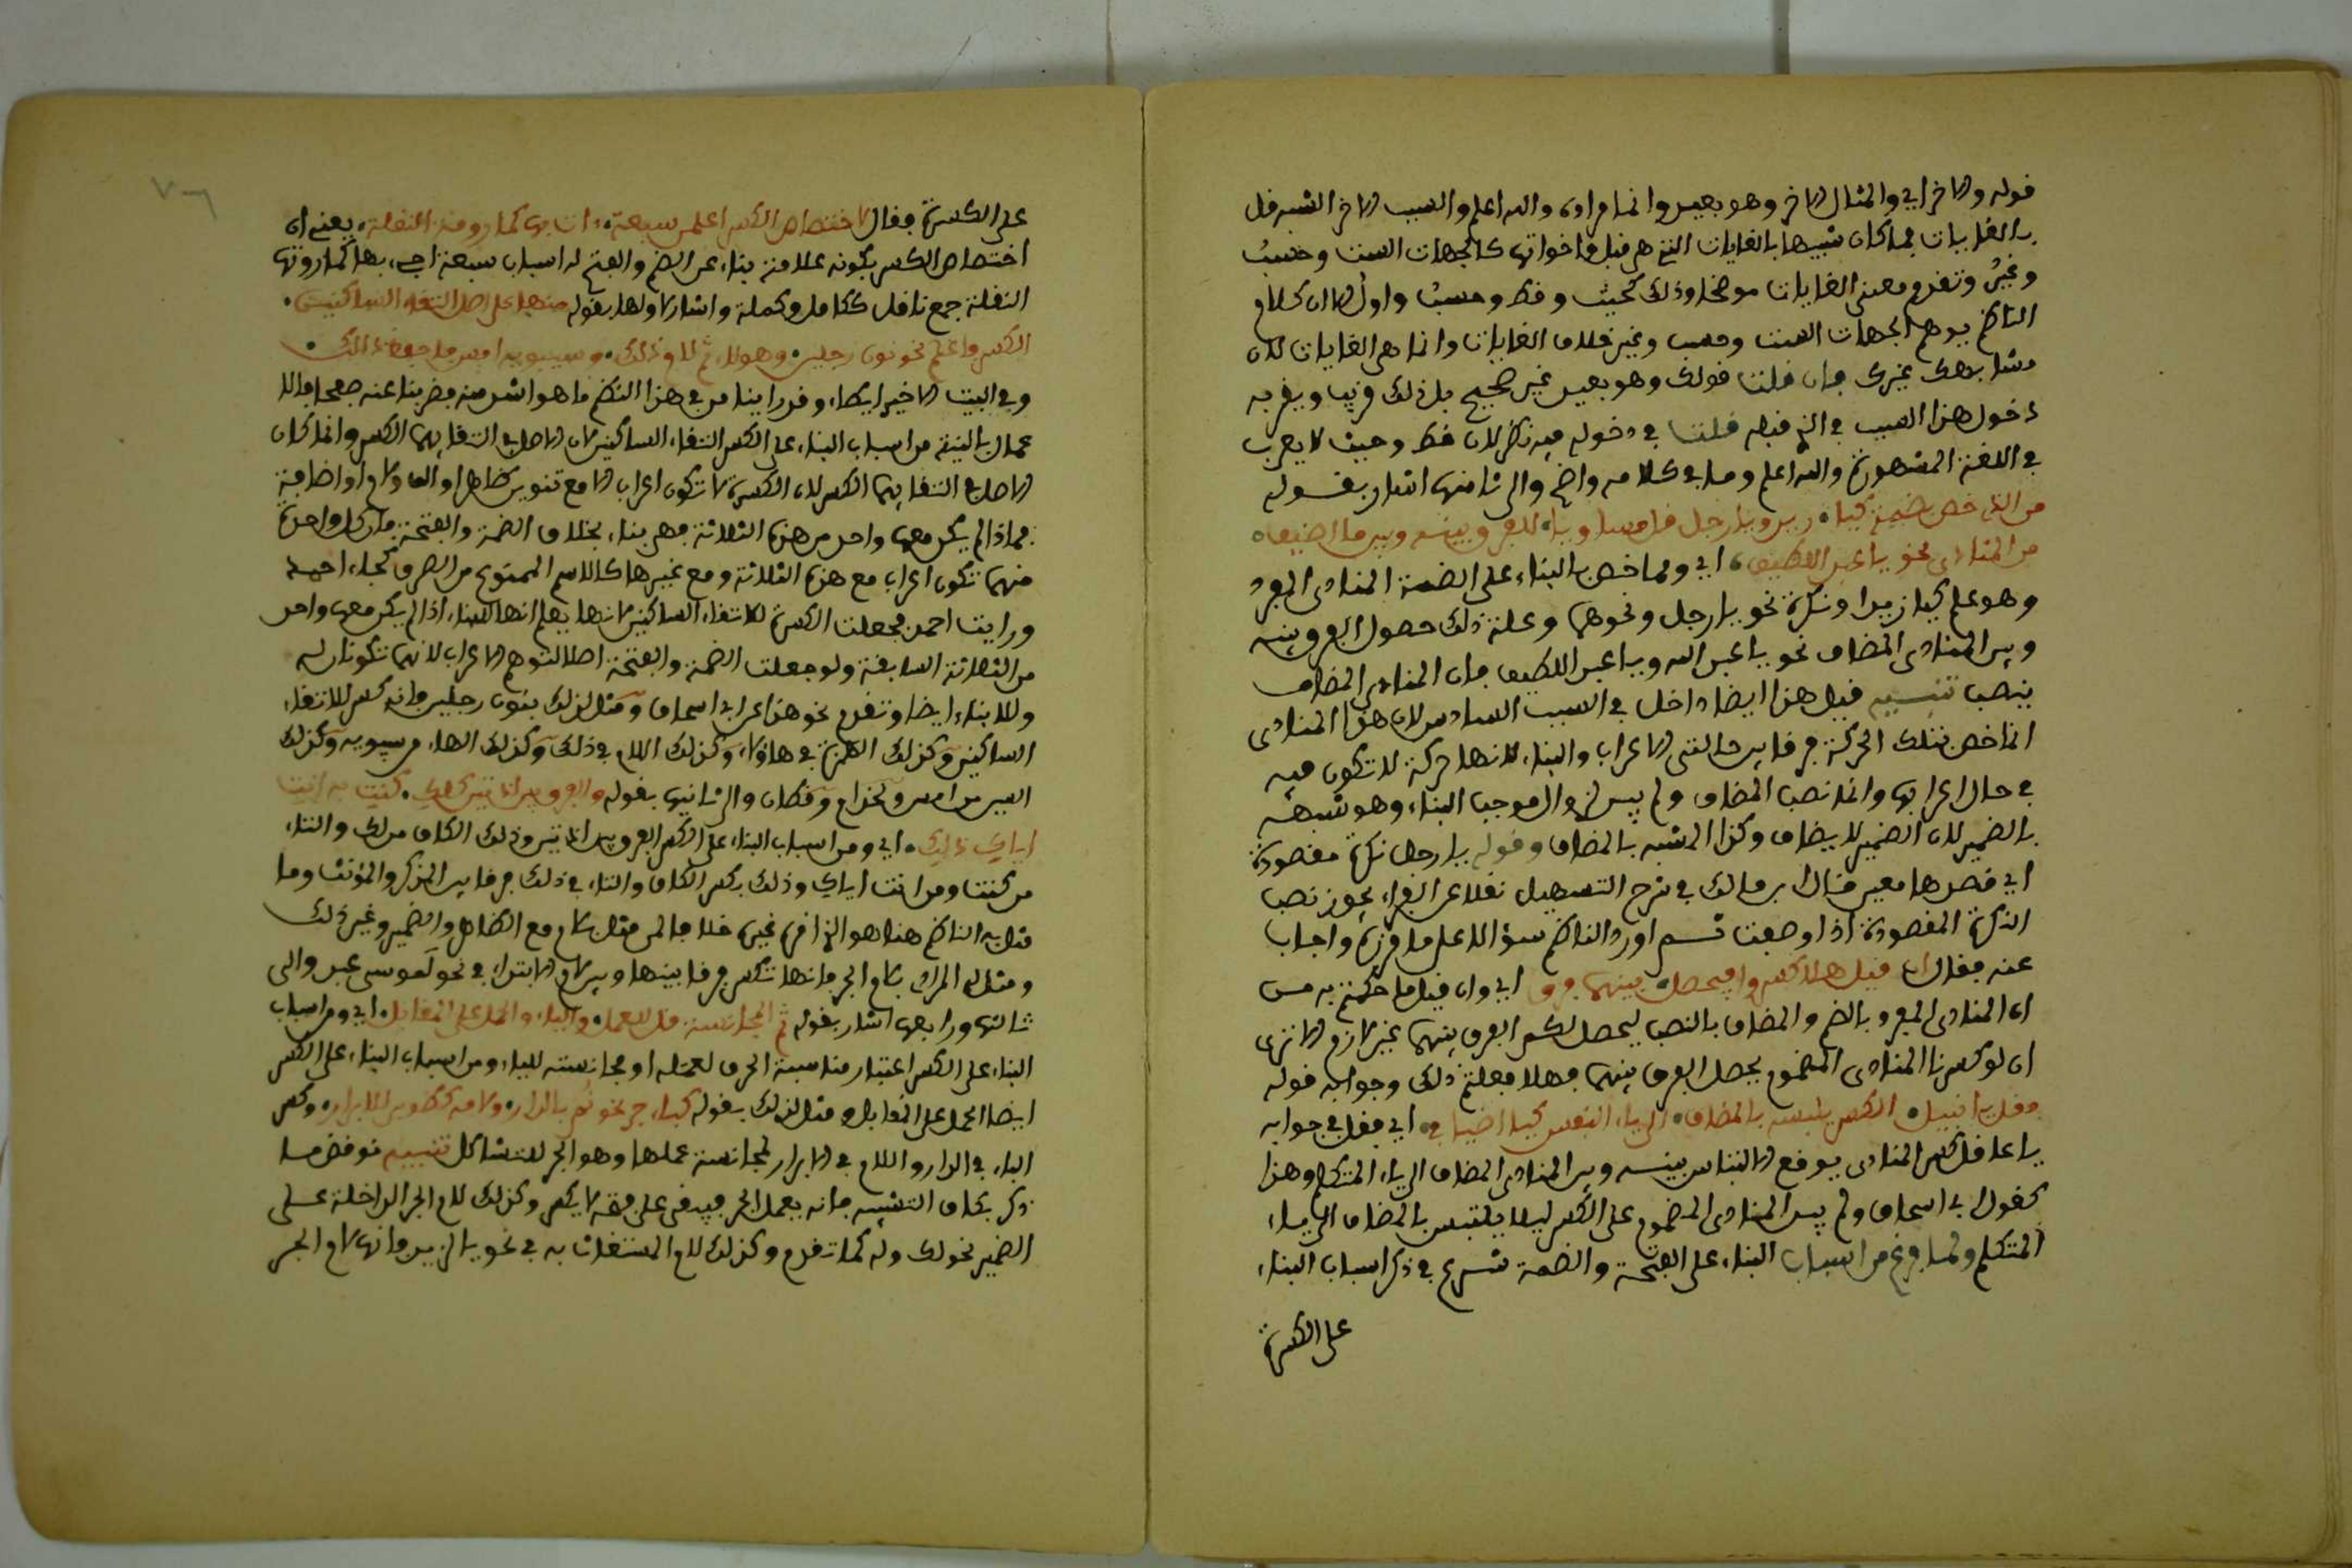 قوله والاخر اي والمثال الاخر وهو بعيد وانما مراده والله اعلم والسبب الاخر الشبه قل
بالغايات مما كان شبيها بالغايات التي هي قبل واخواتها كالجهات الست وحسبُ
وغيرُ وتقدم معنى الغايات موضحا وذلك كحيث وقط وحسبُ واولُ الا ان كلام
الناظم يوهم الجهات الست وحسب وغير خلاف الغايات وانما هي الغايات لان
مشابهك غيرك فان قلت قولك وهو بعيد غير صحيح بل ذلك قريب ويقربه
دخول هذا السبب في الذي قبله قلت في دخوله فيه نظر لان قط وحيث لا يعرب
في اللغة المشهورة والله اعلم وما في كلامه واضح والى ثامنها اشار بقوله
من الذي خص بضمة كيا زيد ويا رجل للفرق بينه وبين ما اضيف
من المنادى نحو يا عبد اللطيف اي ومما خص بالبناء على الضمة المنادى المفرد
وهو علم كيا زيد او نكرة نحو يا رجل ونحوهما وعلة ذلك حصول الفرق بينه
وبين المنادى المضاف نحو يا عبد الله ويا عبد اللطيف فان المنادى المضاف
ينصب تنبيه قيل هذا ايضا داخل في السبب السادس لان هذا المنادى
انما خص بتلك الحركة فرقا بين حالتي الاعراب والبناء لانها حركة لا تكون فيه
في حال اعرابه وانما نصب المضاف ولم يبن لزوال موجب البناء وهو شبهه
بالضمير لان الضمير لا يضاف وكذا المشبه بالمضاف وقوله يا رجل نكرة مقصودة
اي قصدها معين قال ابن مالك في شرح التسهيل نقلا عن الفراء يجوز نصب
النكرة المقصودة اذا وصفت ثم اورد الناظم سؤالا على ما قرره واجاب
عنه فقال ان قيل هلا كسروا فيحصل بينهما فرق اي وان قيل ما حكمتم به من
ان المنادى المفرد بالضم والمضاف بالنصب ليحصل لكم الفرق بينهما غير لازم الا ترى
ان لو كسرنا المنادى المضموم يحصل الفرق بينهما فهلا فعلتم ذلك وجوابه قوله
وقل يا نبيل الكسر يلبس بالمضاف الى ياء النفس كيا اضيافي اي فقل في جوابه
يا عاقل كسر المنادى يوقع الالتباس بينه وبين المنادى المضاف الى ياء المتكلم وهذا
كقول ابي اسحاق ولم يبن المنادى المضموم على الكسر ليلا يلتبس بالمضاف الى ياء
المتكلم ولما فرغ من اسباب البناء على الفتحة والضمة شرع في ذكر اسباب البناء
على الكسرة
٧٦
على الكسرة فقال لاختصاص الكسر اعلمن سبعة اسباب كما روته النقلة يعني ان
اختصاص الكسر بكونه علامة بناء عن الضم والفتح له اسباب سبعة كما روتها
النقلة جمع ناقل ككامل وكملة واشار لاولها بقوله منها على اصل التقاء الساكنين
الكسر واعلم نحو نون رجلين وهؤلاء ثم لام ذلك وسيبويه امس
وفي البيت الاخير ايطاء وقد راينا من في هذا النظم ما هو اشد منه فضربنا عنه صفحا
عملا بالنية من اسباب البناء على الكسر التقاء الساكنين لان الاصل في التقائهما الكسر وانما كان
الاصل في التقائهما الكسر لان الكسرة لا تكون اعراب الا مع تنوين ظاهر او الف ولام او اضافة
فماذا لم يكن معها واحد من هذه الثلاثة فهي بناء بخلاف الضمة والفتحة فان كل واحدة
منهما تكون اعراب مع هذه الثلاثة ومع غيرها كالاسم الممنوع من الصرف كجاء احمد
ورايت احمد فجعلت الكسرة لالتقاء الساكنين لانها يعلم انها للبناء اذا لم يكن معها واحد
من الثلاثة السابقة ولو جعلت الضمة والفتحة اصلا لتوهم الاعراب لانهما تكونان له
وللبناء ايضا وتقدم نحو هذا عن ابي اسحاق ومثل لذلك بنون رجلين فانه كسر لالتقاء
الساكنين وكذلك الهمزة في هاؤلاء وكذلك اللام في ذلك وكذلك الهاء من سيبويه وكذلك
السين من امس وكحذام وقطام والى ثانيها بقوله والفرق بين اثنين كنت به انت
اياك ذلك اي ومن اسباب البناء على الكسر الفرق بين اثنين وذلك الكاف من لك والتاء
من كنت ومن انت اياك وذلك بكسر الكاف والتاء في ذلك فرقا بين المذكر والمؤنث وما
مثل به الناظم هنا هو الذي في غيره خلافا لمن مثل بلام مع الظاهر والضمير وغير ذلك
ومثل له المرادي بلام الجر فانها تكسر فرقا بينها وبين لام الابتداء في نحو لموسى عبد والى
ثالثها ورابعها اشار بقوله ثم المجانسة قل للعمل والياء والحمل على المقابل اي ومن اسباب
البناء على الكسر اعتبار مناسبة الحرف لعمله او مجانسته للياء ومن اسباب البناء على الكسر
ايضا الحمل على المقابل ومثل لذلك بقوله كباء جر نحو ثم بالدار ولامه كطوبى للابرار وكسر
الباء في الدار واللام في الابرار لمجانسة عملها وهو الجر للتشاكل تنبيه نوقض ما
ذكر بكاف التشبيه فانه يعمل الجر فبقي على فتحه لا يكسر وكذلك لام الجر الداخلة على
الضمير نحو لك وله كما تقدم وكذلك لام المستغاث به في نحو يا لزيد فانها لام الجر